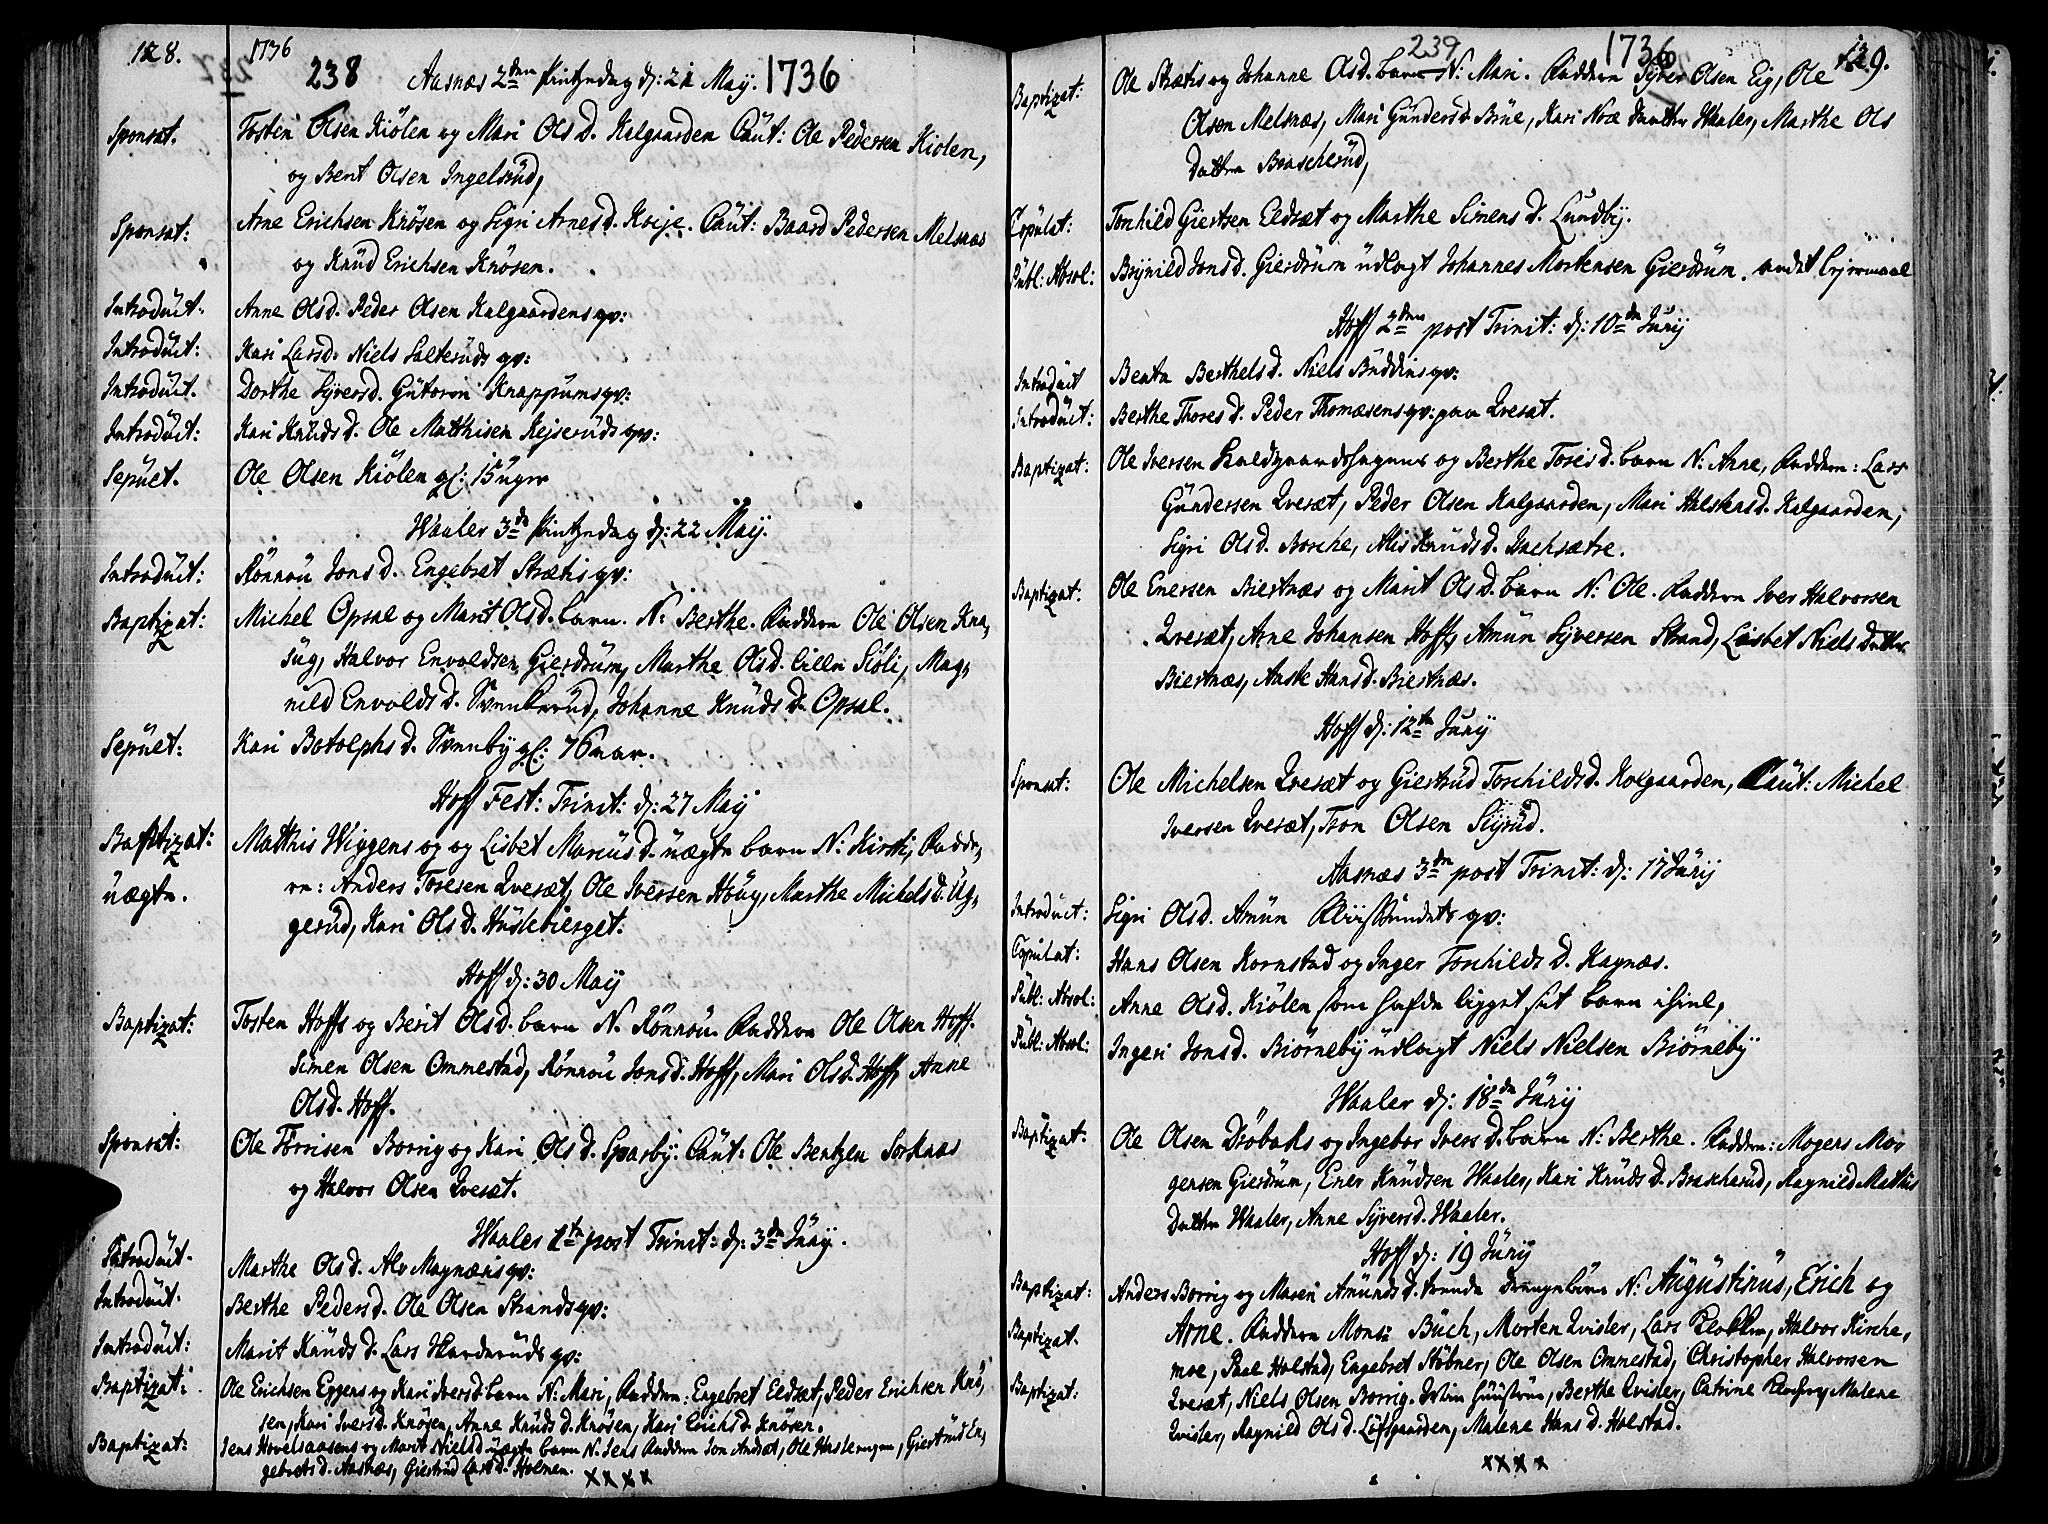 128. 1736
238 Aasnæs 2den Pintzedag d: 21 Maij. 1736
Sponsat. Tosten Olsen Kiölen og Mari Ols D. Kalgaarden Caut: Ole Pedersen Kiolen,
og Bent Olsen Ingelsrüd,
Sponsat: Arne Erichsen Knösen og Sigri Arnes D. Kveje. Caüt: Baard Pedersen Melsnæs
og Knüd Erichsen Knösen.
Introdüit: Anne Olsd. Peder Olsen Kalgaardens qv:
Introdüit: Kari Larsd. Niels Salterüds qv:
Introdüit. Dorthe Syversd. Gütorm Knappüms qv:
Introdüit: Kari Knüds D. Ole Matthisen Kejserüds qv:
Sepüet. Ole Olsen Kiölen gl: 15 üger
Waaler 3de Pintzedag d: 22 Maij.
Introdüit: Rönnoü Jons D. Engebret Strætis qv:
Baptizat: Michel Opsal og Marit Olsd. barn. N: Berthe. Faddern Ole Olsen Kna,
süg, Halvor Envoldsen Gierdrüm, Marthe Olsd. lille Siöli, Mag,
nild Envolds D. Svenkerüd, Johanne Knüds D. Opsal.
Sepüet: Kari Botolphs D. Svenby gl: 76 aar.
Hoff Fest: Trinit: d: 27 Maij
Baptizat: Matthis Wiggens og og Lisbet Mariüs D. üægte barn N: Kirsti, Fadde,
üægte. re: Anders Toresen Qvesæt, Ole Iversen Höüg, Marthe Michels D. Üg,
gerüd, Kari Ols D. Hüslebierget.
Hoff d: 30 Maij
Baptizat: Tosten Hoffs og Berit Olsd. barn N. Rönnoü Faddern Ole Olsen Hoff.
Simen Olsen Ommestad, Rönnoü Jonsd. Hoff, Mari Olsd. Hoff, Anne
Olsd. Hoff.
Sponsat: Ole Torrisen Borrig og Kari Ols D. Sparby. Caüt: Ole Bentzen Sorknæs
og Halvor Olsen Qvesæt.
Waaler 1te post Trinit: d: 3de Jünij.
Introdüit. Marthe Ols d. Alv Magnæns qv:
Introdüit. Berthe Peders d. Ole Olsen Strands qv:
Introdüit: Marit Knüds D. Lars Harderüds qv:
Baptizat: Ole Erichsen Eggens og Kari Ivers d. barn N: Mari, Faddern: Engebret Eidsæt, Peder Erichsen Knö,
sen, Kari Ivers d. Knösen, Anne Knüds D. Knösen, Kari Erichs d. Knösen.
Baptizat: Jens Hovelsaasens og Marit Niels d. üægte barn N. Jens Faddern Jon Andræt, Ole Haslerügen, Giertrüd En,
gebrets d. Aasnæs, Giertrüd Lars D. Holmen.
xxxx
239 1736 129.
Baptizat: Ole Strætis og Johanne Olsd. barn N: Mari. Faddern Syver Olsen Eig, Ole
Olsen Melsnæs, Mari Günders d. Brüe, Kari Datter Waaler, Marthe Ols
Datter Brascherüd,
Copülat: Torchild Giertsen Eidsæt og Marthe Simens D. Lundby.
Pübl: Absol: Brynild Jons d. Gierdrüm üdlagt Johannes Mortensen Gierdrüm. andet leyermaal
Hoff 2den post Trinit: d: 10de Jünij
Introdüit Bente Berthels d. Niels Büddins qv:
Introdüit: Berthe Thores D. Peder Thomæsens qv: paa Qvesæt.
Baptizat: Ole Iversen og Berthe Tores d. barn N: Anne, Faddern: Lars
Gündersen Qvesæt, Peder Olsen Kalgaarden, Mari Halskas d. Kalgaarden,
Sigri Olsd. Borche, Alis Knüds d. Dachsætre.
Baptizat: Ole Enersen Biertnæs og Marit Ols d. barn N: Ole. Faddern Iver Halvorsen
Qvesæt, Arne Johansen Hoff, Amün Syversen Strand, Lisbet Niels Datter
Biertnæs, Aaste Hans d. Biertnæs.
Hoff d: 12te Jünij
Sponsat: Ole Michelsen Qvesæt og Giertrüd Torchilds d. Kolgaarden, Caüt: Michel
Iversen Qvesæt, Tron Olsen Sigrüd.
Aasnæs 3de post Trinit: d: 17 Jünij
Introdüct: Sigri Ols d. Amün qv:
Copülat: Hans Olsen Kornstad og Inger Torchilds D. Kagnæs.
Pübl: Absol: Anne Ols d. Kiölen som hafde ligget sit barn ihiel,
Pübl: Absol: Ingeri Jons d. Biörneby üdlagt Niels Nielsen Biörneby
Waaler d: 18de Jünij
Baptizat: Ole Olsen Dröbachs og Ingebor Ivers D. barn N: Berthe. Faddern: Mogens Mo
gensen Gierdrüm, Ener Knüdsen Waaler, Kari Knüds d. Braskerüd, Ragnild Mathis
Datter Waaler, Anne Syvers d. Waaler.
Hoff d: 19 Jünij
Baptizat: Anders Borrig og Maren Amünds d. trende drengebörn N: Aügüstinüs, Erich og
Baptizat. Arne. Faddern Mons: Büch, Morten Qvisler, Lars Klokker, Halvor Kirche,
moe, Paal Holstad, Engebret Stübner, Ole Olsen Ommestad, Christopher Halvorsen
Baptizat: Qvesæt, Niels Olsen Borrig. Berthe Qvisler, Catrine Malene
Qvisler, Ragnild Ols d. Löfsgaarden, Malene Hans d. Holstad.
xxxx